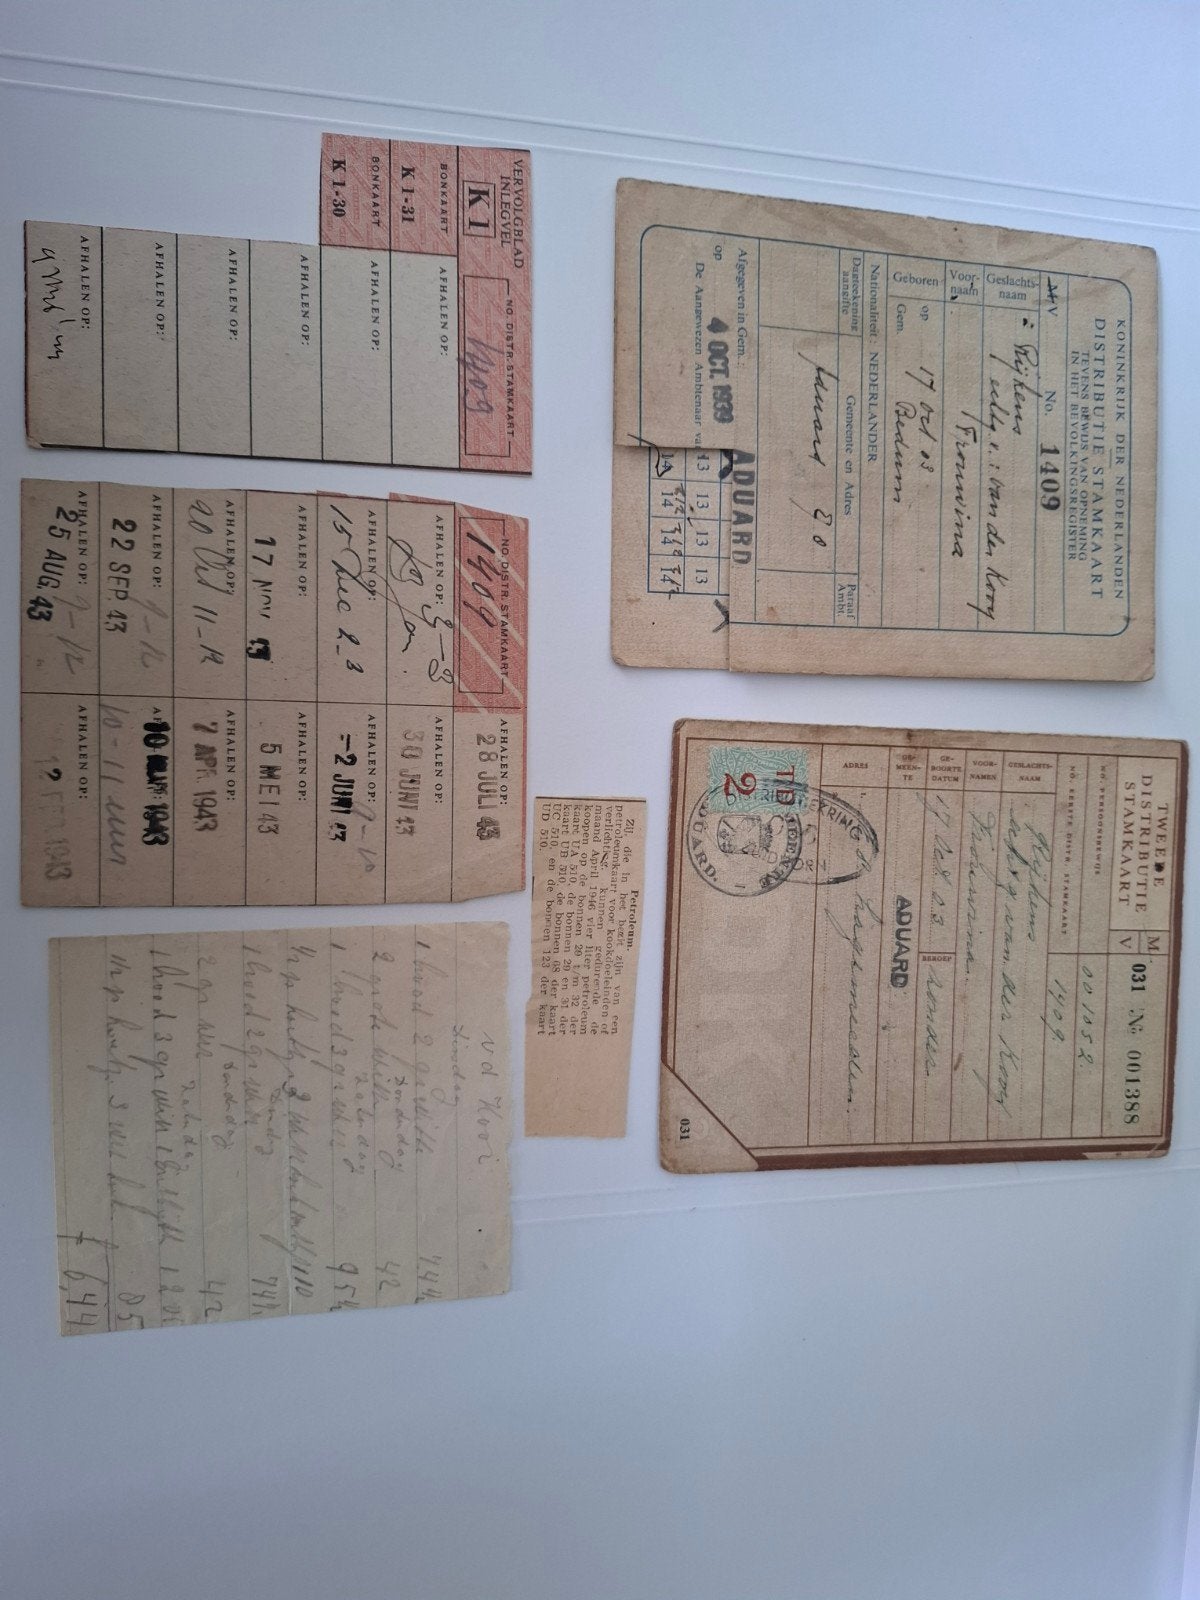 KONINKRIJK DER NEDERLANDEN
DISTRIBUTIE STAMKAART
TEVENS BEWIJS VAN OPNEMING
IN HET BEVOLKINGSREGISTER
M/V No. 1409
Geslachts-naam : Rijkens
echtg. v. : van der Kooy
Voor-naam Trouwina
Geboren op 17 Oct 03
Gem. Bedum
Nationaliteit: NEDERLANDER
Dagteekening aangifte Gemeente en Adres Paraaf Ambt.
Aduard 20
Afgegeven in Gem.: ADUARD
op 4 OCT. 1939
De Aangewezen Ambtenaar va
13 13 13 13
14 14 14 14
TWEEDE
DISTRIBUTIE
STAMKAART
M.
V
031 No 001388
NO. PERSOONSBEWIJS 001052
NO. EERSTE DISTR. STAMKAART 1409.
GESLACHTS-NAAM Rijkens
echtg. van der Kooy
VOOR-NAMEN Trouwina.
GE-BOORTE DATUM 17 Oct. 03 BEROEP zonder
GE-MEEN-TE ADUARD
ADRES 1.
TD
2
ADUARD.
031
VERVOLGBLAD
INLEGVEL
K 1
NO. DISTR. STAMKAART
1409
BONKAART
K 1-31
AFHALEN OP:
BONKAART
K 1-30
AFHALEN OP:
AFHALEN OP:
AFHALEN OP:
AFHALEN OP:
AFHALEN OP:
NO. DISTR. STAMKAART
1409
AFHALEN OP: 28 JULI 43
AFHALEN OP: 2-3
Jan.
AFHALEN OP: 30 JUNI 43
AFHALEN OP:
15 Dec 2-3
AFHALEN OP: 9-10
-2 JUNI 43
AFHALEN OP:
17 NOV 43
AFHALEN OP:
5 MEI 43
AFHALEN OP:
20 Oct 11-12
AFHALEN OP:
7 APR 1943
AFHALEN OP: 9-12
22 SEP. 43
10 MRT 1943
10-11 uur
AFHALEN OP: 9-12
25 AUG. 43
AFHALEN OP:
12 FEB 1943
Petroleum.
Zij, die in het bezit zijn van een
petroleumkaart voor kookdoeleinden of
verlichting, kunnen gedurende de
maand April 1946 vier liter petroleum
koopen op de bonnen 29 t/m 32 der
kaart UA 510, de bonnen 29 en 31 der
kaart UB 510, de bonnen 68 der kaart
UC 510, en de bonnen 123 der kaart
UD 510.
vd Kooi
Dinsdag
1 brood 2 74½
Donderdag
2 groote 42
Zaterdag
1 brood 3 95½
1 10
Dinsdag
1 brood 2 74½
Donderdag
2 42
Zaterdag
1 brood 3 1 20
85
f 6,44